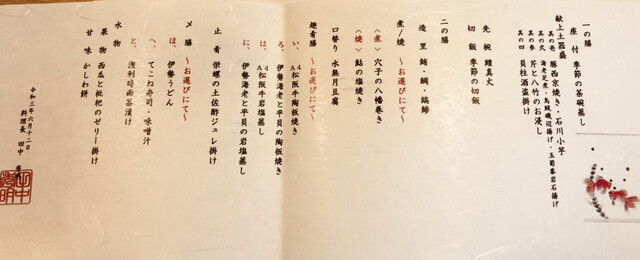 一の膳
座付 季節の茶碗蒸し
献上土器盛
其の壱 豚西京焼き・石川小芋
其の弐 海老芝煮・烏賊磯辺揚げ・玉蜀黍岩石揚げ
其の参 芹と八竹のお浸し
其の四 貝柱酒盗掛け
先椀 鱧真丈
切飯 季節の切飯
二の膳
造里 鮪・鯛・縞鯵
煮/焼 〜お選びにて〜
〈煮〉 穴子の八幡巻き
〈焼〉 鮎の塩焼き
口替り 水無月豆腐
趣肴膳 〜お選びにて〜
い、A4松阪牛陶板焼き
ろ、伊勢海老と平貝の陶板焼き
は、A4松阪牛岩塩蒸し
に、伊勢海老と平貝の岩塩蒸し
止肴 栄螺の土佐酢ジュレ掛け
〆膳 〜お選びにて〜
ほ、伊勢うどん
へ、てこね寿司・味噌汁
と、浅利時雨茶漬け
水物
果物 西瓜と枇杷のゼリー掛け
甘味 かしわ餅
令和三年六月十二日
料理長 田中